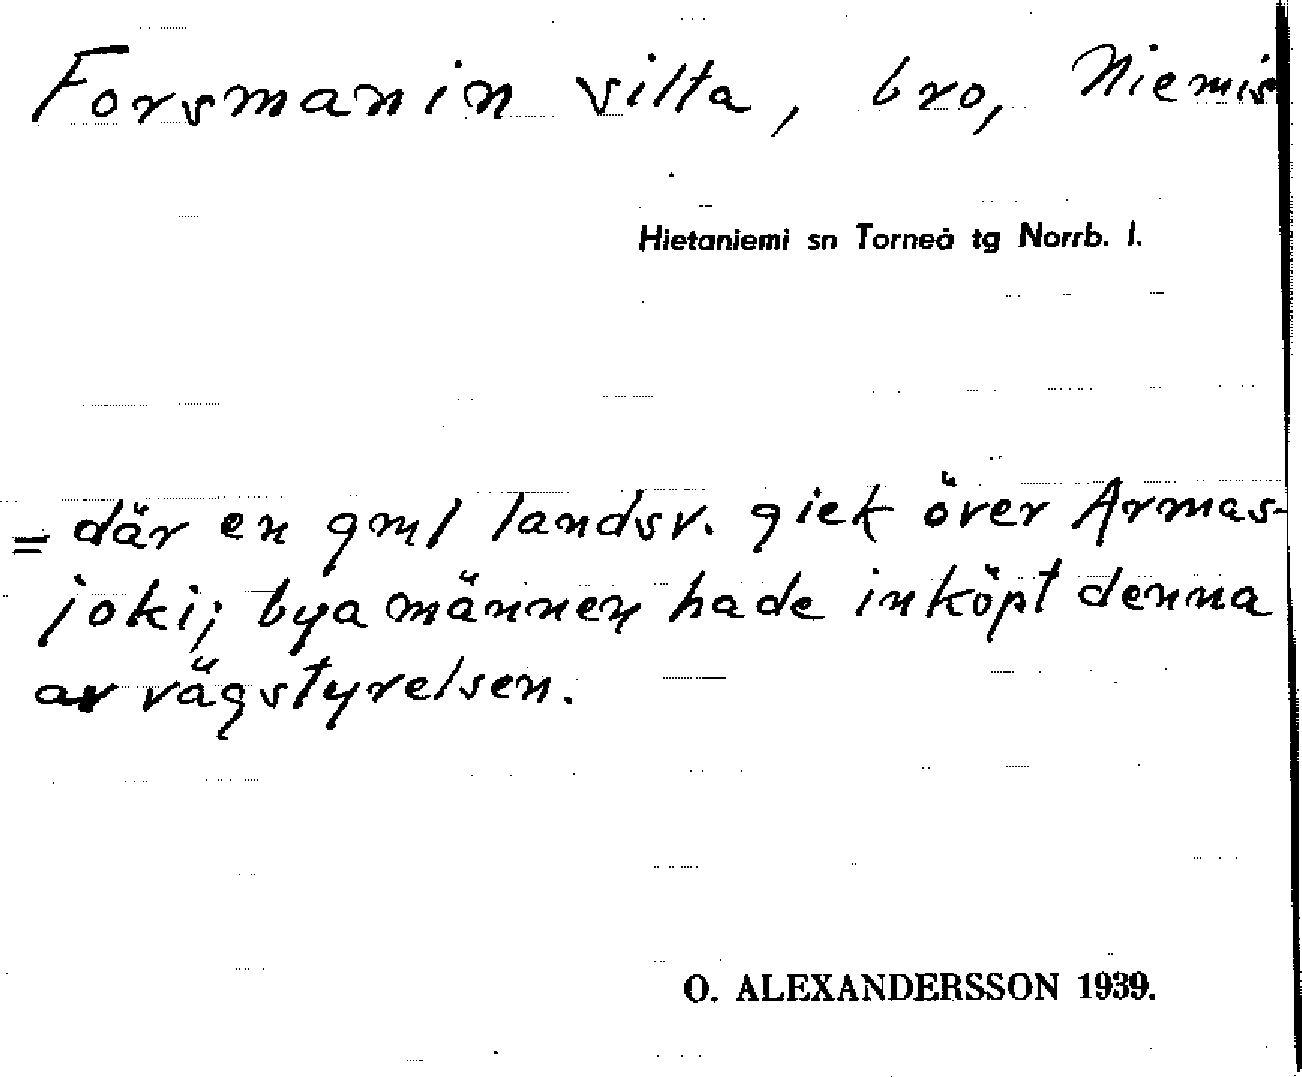 Forsmanin silta, bro, Niemis
Hietaniemi sn Torneå tg Norrb. l.
= där en gml landsv. gick över Armas-
joki; byamännen hade inköpt denna
av vägstyrelsen.
O. ALEXANDERSSON 1939.